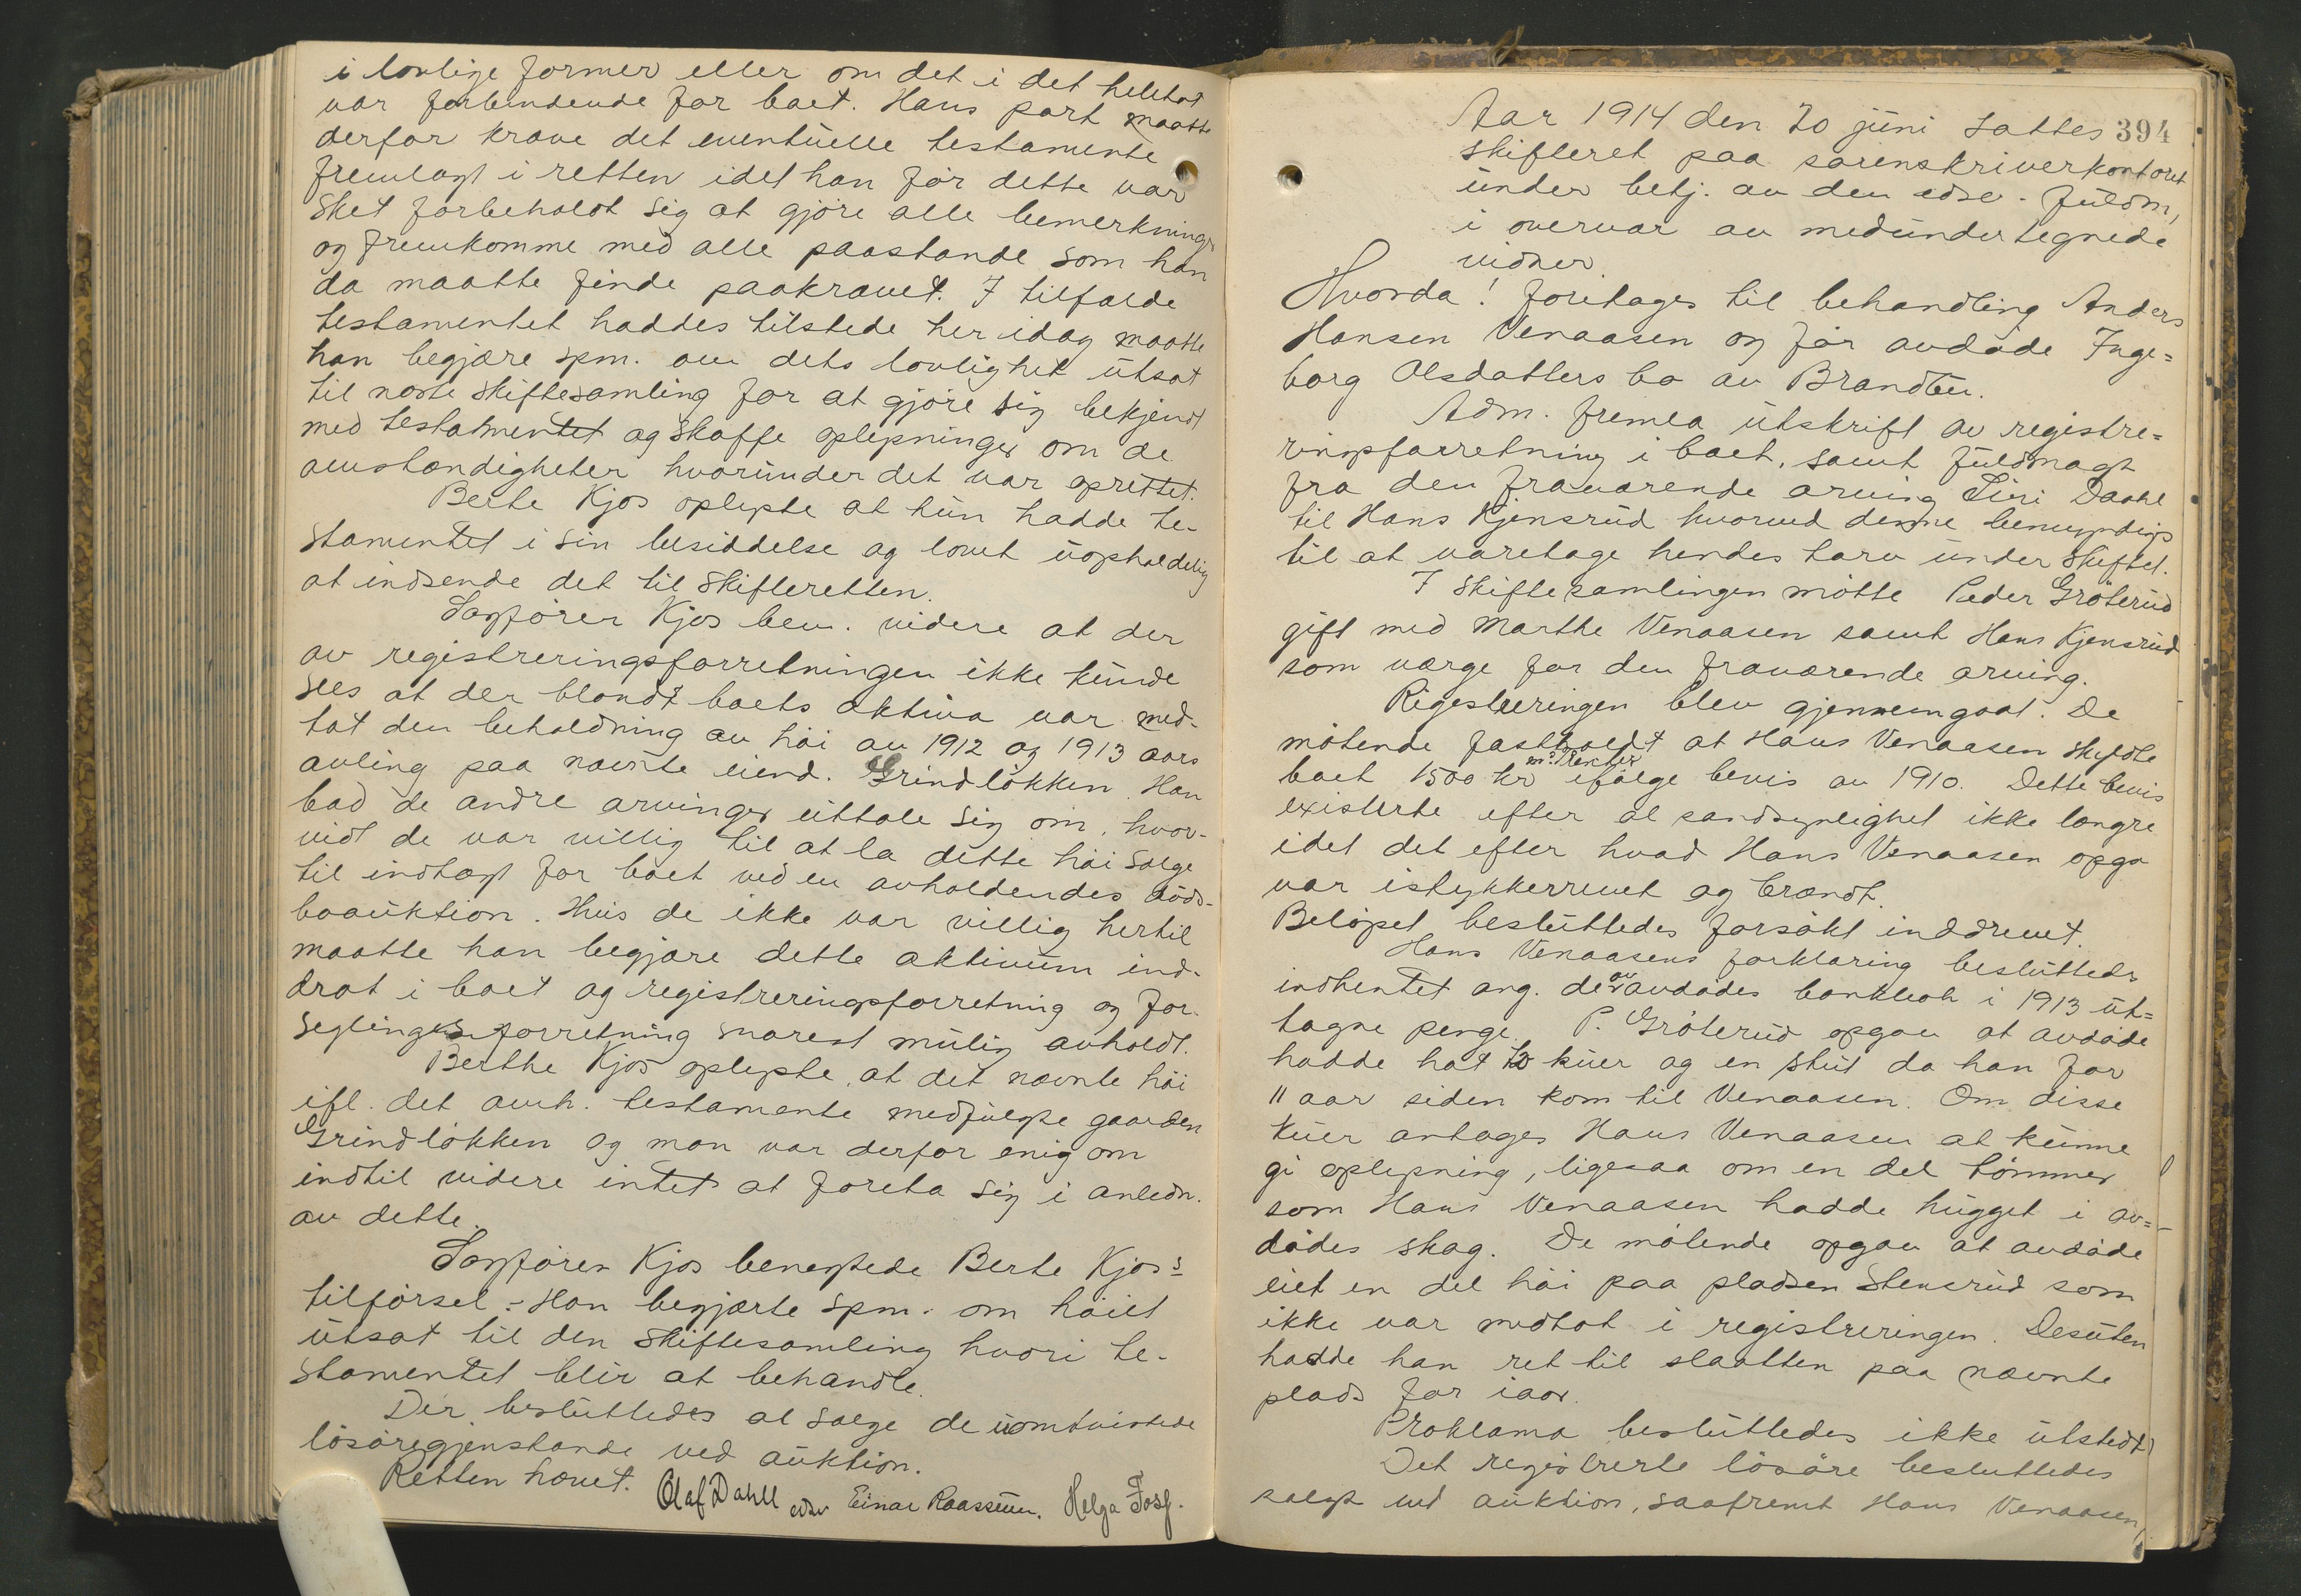 i lovlige former eller om det i det heletat
var forbindende for boet. Hans part maatte
derfor kræve det eventuelle testamente
fremlagt i retten idet han før dette var
sket forbeholdt sig at gjøre alle bemerkninger
og fremkomme med alle paastande som han
da maatte finde paakrævet. I tilfælde
testamentet haddes tilstede her idag maatte
han begjære spm. om dets lovlighet utsat
til næste skiftesamling for at gjøre sig bekjendt
med testamentet og skaffe oplysninger om de
omstændigheter hvorunder det var oprettet.
Berte Kjos oplyste at hun hadde te-
stamentet i sin besiddelse og lovet uopholdelig
at indsende det til skifteretten.
Sagfører Kjos bem. videre at der
av registreringsforretningen ikke kunde
sees at der blandt boets aktiva var med-
tat den beholdning av høi av 1912 og 1913 aars
avling paa nævnte eiend. Grindløkken. Han
bad de andre arvinger uttale sig om, hvor-
vidt de var villig til at la dette høi sælge
til indtægt for boet ved en avholdendes døds-
boauktion. Hvis de ikke var villig hertil
maatte han begjære dette aktivum ind-
drat i boet og registreringsforretning og for-
seglingsforretning snarest mulig avholdt.
Berthe Kjos oplyste, at det nævnte høi
ifl. det omh. testamente medfulgte gaarden
Grindløkken og man var derfor enig om
indtil videre intet at foreta sig i anledn.
av dette.
Sagfører Kjos benegtede Berte Kjos's
tilførsel. Han begjærte spm. om høiet
utsat til den skiftesamling hvori te-
stamentet blir at behandle.
Der besluttedes at sælge de uomtvistede
løsøregjenstande ved auktion.
Retten hævet. Olaf Dahll edsv Einar Raassum. Helga Fosf.
394
Aar 1914 den 20 juni sattes
skifteret paa sorenskriverkontoret
under betj. av den edsv. fuldm,
i overvær av medundertegnede
vidner.
Hvorda! foretages til behandling Anders
Hansen Venaasen og før avdøde Inge=
borg Olsdatters bo av Brandbu.
Adm. fremla utskrift av registre=
ringsforretning i boet, samt fuldmagt
fra den fraværende arving Siri Daahl
til Hans Kjensrud hvorved denne bemyndiges
til at varetage hendes tarv under skiftet.
I skiftesamlingen møtte Peder Grøterud
gift med Marthe Venaasen samt Hans Kjensrud
som værge for den fraværende arving.
Rigestreringen blev gjennemgaat. De
møtende fastholdt at Hans Venaasen skyldte
boet 1500 kr m. renter ifølge bevis av 1910. Dette bevis
existerte efter al sandsynlighet ikke længre
idet det efter hvad Hans Venaasen opga
var istykkerrevet og brændt.
Beløpet besluttedes forsøkt inddrevet.
Hans Venaasens forklaring besluttedes
indhentet ang. de av avdødes bankbok i 1913 ut=
tagne penge. P. Grøterud opgav at avdøde
hadde hat to kuer og en stut da han for
11 aar siden kom til Venaasen. Om disse
kuer antages Hans Venaasen at kunne
gi oplysning, ligesaa om en del tømmer
som Hans Venaasen hadde hugget i av=
dødes skog. De møtende opgav at avdøde
eiet en del høi paa pladsen Stensrud som
ikke var medtat i registreringen. Desuten
hadde han ret til slaatten paa nævnte
plads for iaar.
Proklama besluttedes ikke utstedt
Det registrerte løsøre besluttedes
solgt ved auktion, saafremt Hans Venaasen,